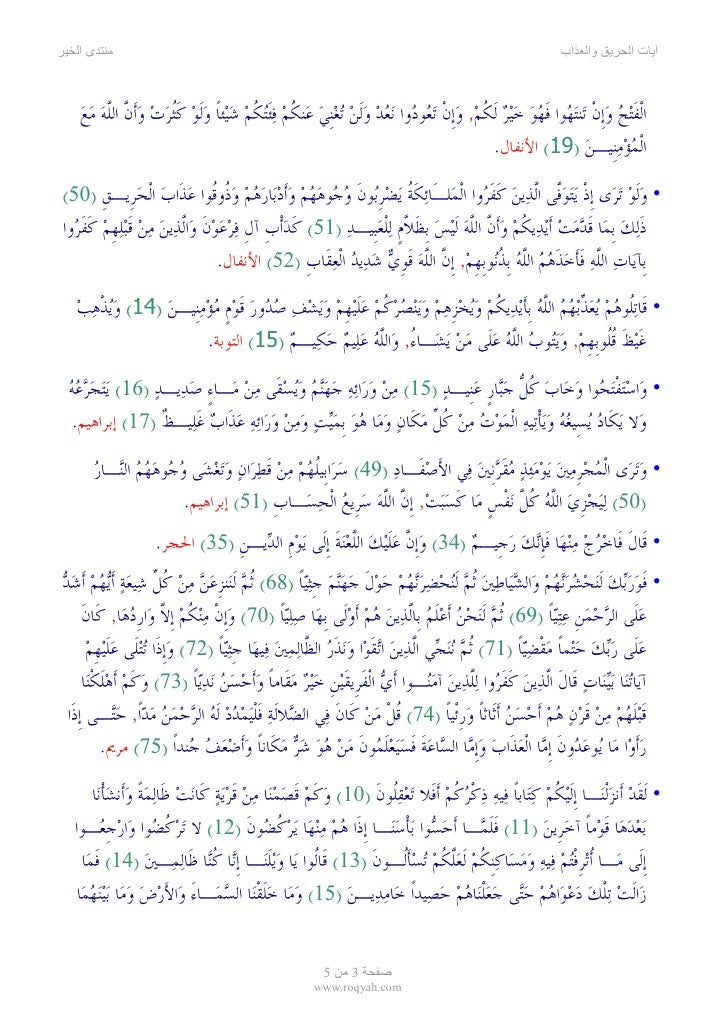 آيات الحريق والعذاب
منتدى الخير
الْفَتْحُ وَإِنْ تَنتَهُوا فَهُوَ خَيْرٌ لَكُمْ, وَإِنْ تَعُودُوا نَعُدْ وَلَنْ تُغْنِيَ عَنكُمْ فِئَتُكُمْ شَيْئاً وَلَوْ كَثُرَتْ وَأَنَّ اللَّهَ مَعَ
الْمُؤْمِنِيــنَ (19) الأنفال.
• وَلَوْ تَرَى إِذْ يَتَوَفَّى الَّذِينَ كَفَرُوا الْمَلــَائِكَةُ يَضْرِبُونَ وُجُوهَهُمْ وَأَدْبَارَهُمْ وَذُوقُوا عَذَابَ الْحَرِيــقِ (50)
ذَلِكَ بِمَا قَدَّمَتْ أَيْدِيكُمْ وَأَنَّ اللَّهَ لَيْسَ بِظَلاَّمٍ لِلْعَبِيــدِ (51) كَدَأْبِ آلِ فِرْعَوْنَ وَالَّذِينَ مِنْ قَبْلِهِمْ كَفَرُوا
بِآيَاتِ اللَّهِ فَأَخَذَهُمُ اللَّهُ بِذُنُوبِهِمْ, إِنَّ اللَّهَ قَوِيٌّ شَدِيدُ الْعِقَابِ (52) الأنفال.
• قَاتِلُوهُمْ يُعَذِّبْهُمُ اللَّهُ بِأَيْدِيكُمْ وَيُخْزِهِمْ وَيَنْصُرْكُمْ عَلَيْهِمْ وَيَشْفِ صُدُورَ قَوْمٍ مُؤْمِنِيــنَ (14) وَيُذْهِبْ
غَيْظَ قُلُوبِهِمْ, وَيَتُوبُ اللَّهُ عَلَى مَنْ يَشَــاءُ, وَاللَّهُ عَلِيمٌ حَكِيــمٌ (15) التوبة.
• وَاسْتَفْتَحُوا وَخَابَ كُلُّ جَبَّارٍ عَنِيــدٍ (15) مِنْ وَرَائِهِ جَهَنَّمُ وَيُسْقَى مِنْ مَــاءٍ صَدِيــدٍ (16) يَتَجَرَّعُهُ
وَلا يَكَادُ يُسِيغُهُ وَيَأْتِيهِ الْمَوْتُ مِنْ كُلِّ مَكَانٍ وَمَا هُوَ بِمَيِّتٍ وَمِنْ وَرَائِهِ عَذَابٌ غَلِيــظٌ (17) إبراهيم.
• وَتَرَى الْمُجْرِمِينَ يَوْمَئِذٍ مُقَرَّنِينَ فِي الأَصْفَــادِ (49) سَرَابِيلُهُمْ مِنْ قَطِرَانٍ وَتَغْشَى وُجُوهَهُمُ النَّــارُ
(50) لِيَجْزِيَ اللَّهُ كُلَّ نَفْسٍ مَا كَسَبَتْ, إِنَّ اللَّهَ سَرِيعُ الْحِسَــابِ (51) إبراهيم.
• قَالَ فَاخْرُجْ مِنْهَا فَإِنَّكَ رَجِيــمٌ (34) وَإِنَّ عَلَيْكَ اللَّعْنَةَ إِلَى يَوْمِ الدِّيــنِ (35) الحجر.
• فَوَرَبِّكَ لَنَحْشُرَنَّهُمْ وَالشَّيَاطِينَ ثُمَّ لَنُحْضِرَنَّهُمْ حَوْلَ جَهَنَّمَ جِثِيّاً (68) ثُمَّ لَنَنزِعَنَّ مِنْ كُلِّ شِيعَةٍ أَيُّهُمْ أَشَدُّ
عَلَى الرَّحْمَنِ عِتِيّاً (69) ثُمَّ لَنَحْنُ أَعْلَمُ بِالَّذِينَ هُمْ أَوْلَى بِهَا صِلِيّاً (70) وَإِنْ مِنْكُمْ إِلاَّ وَارِدُهَا, كَانَ
عَلَى رَبِّكَ حَتْماً مَقْضِيّاً (71) ثُمَّ نُنَجِّي الَّذِينَ اتَّقَوْا وَنَذَرُ الظَّالِمِينَ فِيهَا جِثِيّاً (72) وَإِذَا تُتْلَى عَلَيْهِمْ
آيَاتُنَا بَيِّنَاتٍ قَالَ الَّذِينَ كَفَرُوا لِلَّذِينَ آمَنُــوا أَيُّ الْفَرِيقَيْنِ خَيْرٌ مَقَاماً وَأَحْسَنُ نَدِيّاً (73) وَكَمْ أَهْلَكْنَا
قَبْلَهُمْ مِنْ قَرْنٍ هُمْ أَحْسَنُ أَثَاثاً وَرِئْياً (74) قُلْ مَنْ كَانَ فِي الضَّلالَةِ فَلْيَمْدُدْ لَهُ الرَّحْمَنُ مَدّاً, حَتَّــى إِذَا
رَأَوْا مَا يُوعَدُونَ إِمَّا الْعَذَابَ وَإِمَّا السَّاعَةَ فَسَيَعْلَمُونَ مَنْ هُوَ شَرٌّ مَكَاناً وَأَضْعَفُ جُنداً (75) مريم.
• لَقَدْ أَنزَلْنَــا إِلَيْكُمْ كِتَاباً فِيهِ ذِكْرُكُمْ أَفَلا تَعْقِلُونَ (10) وَكَمْ قَصَمْنَا مِنْ قَرْيَةٍ كَانَتْ ظَالِمَةً وَأَنشَأْنَا
بَعْدَهَا قَوْماً آخَرِينَ (11) فَلَمَّــا أَحَسُّوا بَأْسَنَــا إِذَا هُمْ مِنْهَا يَرْكُضُونَ (12) لا تَرْكُضُوا وَارْجِعُــوا
إِلَى مَــا أُتْرِفْتُمْ فِيهِ وَمَسَاكِنِكُمْ لَعَلَّكُمْ تُسْأَلُــونَ (13) قَالُوا يَا وَيْلَنَــا إِنَّا كُنَّا ظَالِمِــينَ (14) فَمَا
زَالَتْ تِلْكَ دَعْوَاهُمْ حَتَّى جَعَلْنَاهُمْ حَصِيداً خَامِدِيــنَ (15) وَمَا خَلَقْنَا السَّمَــاءَ وَالأَرْضَ وَمَا بَيْنَهُمَا
صفحة 3 من 5
www.roqyah.com